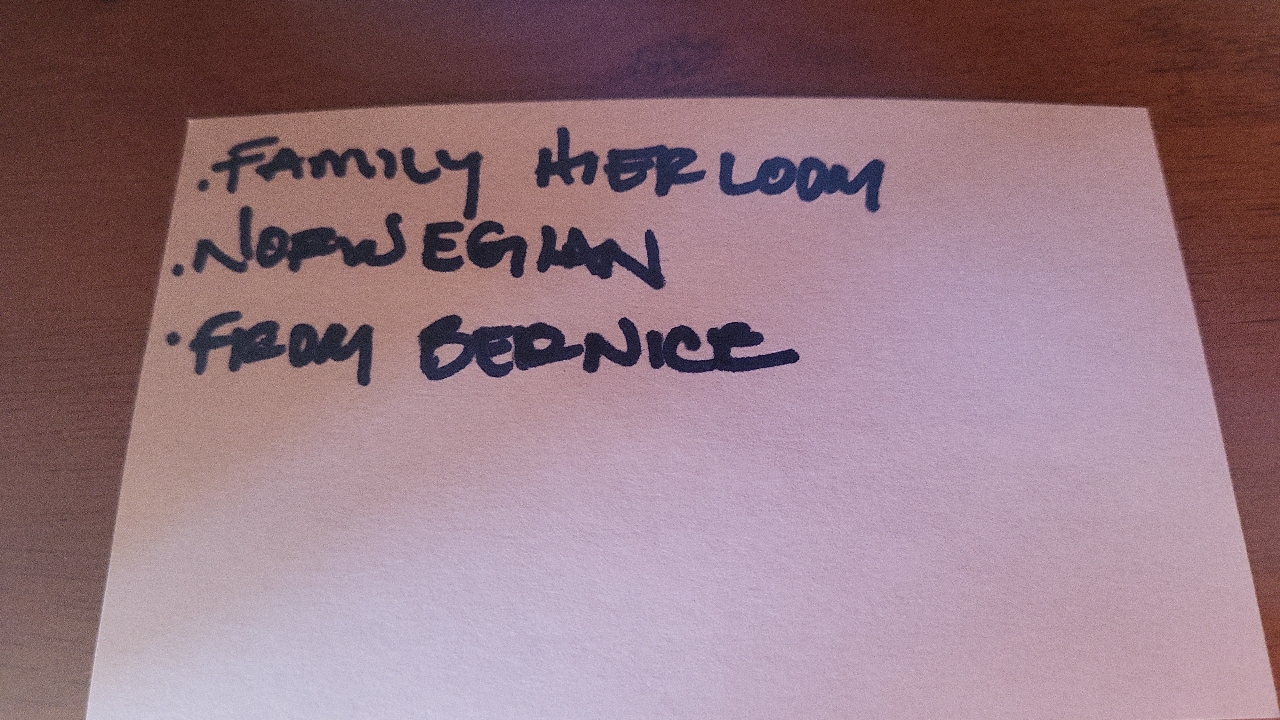 .FAMILY HIERLOOM
.NORWEGIAN
·FROM BERNICE